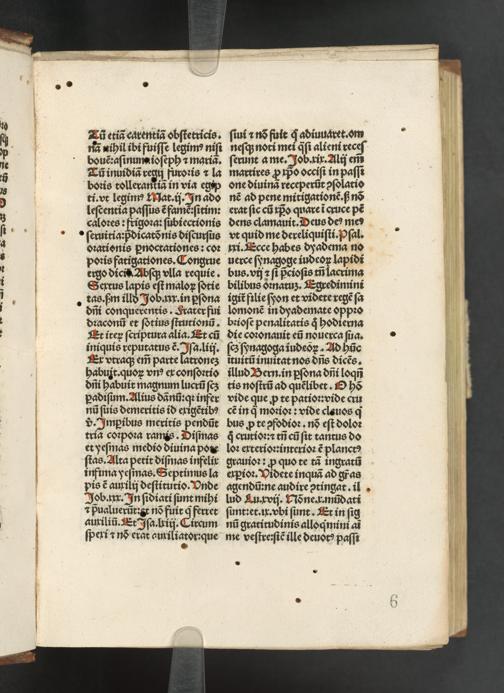 Tū etiā carentiā obstetricis.
nā nihil ibi fuisse legim⁹ nisi
bouē: asinum: ioseph ⁊ mariā.
Tū inuidiā regū furoris ⁊ la
boris tollerantiā in via egip
ti. vt legim⁹ Mat. ij. In ado
lescentia passus ē famē: sitim:
calores: frigora: subiectionis
seruitia: p̄dicatōnis discursus
orationis ꝑnoctationes: cor
poris fatigationes. Congrue
ergo dicit. Absqꝫ vlla requie.
Sextus lapis est malor̄ socie
tas. scd̄m illd̄ Job. xxx. in ꝑsona
dn̄i conquerentis. Frater fui
draconū et sotius strutionū.
Et iteꝝ scriptura alia. Et cū
iniquis reputatus ē. Isa. liij.
Ex vtraqꝫ em̄ parte latrones
habuit. quoꝝ vn⁹ ex consortio
dn̄i habuit magnum lucrū scꝫ
padisum. Alius dānū: qꝛ infer
nū suis demeritis id exigētibꝰ
Imparibus meritis pendūt
tria corpora ramis. Dismas
et yesmas medio diuina pote
stas. Alta petit dismas infelix
infima yesmas. Septimus la
pis ē auxilij destitutio. Vnde
Job. xxx. In sidiati sunt mihi
⁊ p̄ualuerūt: et nō fuit q̇ ferret
auxiliū. Et Isa. lxiij. Circum
spexi ⁊ nō erat auxiliator: que
siui ⁊ nō fuit q̇ adiuuaret. om
nesqꝫ noti mei q̄si alieni reces
serunt a me. Job. xix. Alij em̄
martires ꝓ xp̄o occisi in passi
one diuina receperūt ꝯsolatio
nē ad pene mitigationē. s̄ nō
erat sic cū xp̄o quare ī cruce pē
dens clamauit. Deus de⁹ me⁹
vt quid me dereliquisti. Psal.
xxi. Ecce habes dyadema no
uerce synagoge iudeoꝝ lapidi
bus. vij. ⁊ si p̄ciosis tn̄ lacrima
bilibus ornatuꝫ. Egredimini
igit̄ filie syon et videte regē sa
lomonē in dyademate oppro
briose penalitatis q̄ hodierna
die coronauit eū nouerca sua.
scꝫ synagoga iudeoꝝ. Ad hūc
ituitū inuitat nos dn̄s dicēs.
illud Bern. in ꝑsona dn̄i loqn̄
tis nostrū ad quēlibet. O hō
vide que ꝓ te patior: vide cru
cē in q̄ morior: vide clauos q̇
bus ꝓ te ꝯfodior. nō est dolor
q̄ crucior: ⁊ tn̄ cū sit tantus do
lor exterior: interior ē planct⁹
grauior: ꝓ quo te tā ingratū
experior. Videte inquā ad grās
agendū: ne audire ꝯtingat. il
lud Lu. xvij. Nōne. x. mūdati
sunt: et. ix. vbi sunt. Et in sig
nū gratitudinis alloq̄mini ai
me vestre: sic̄ ille deuot⁹ passi
6